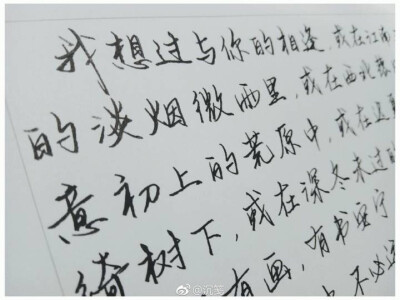 我想过与你的相逢，或在江南
的淡烟微雨里，或在西北
意初上的荒原中，或在
树下，或在深冬未过的
有画，有书
不必